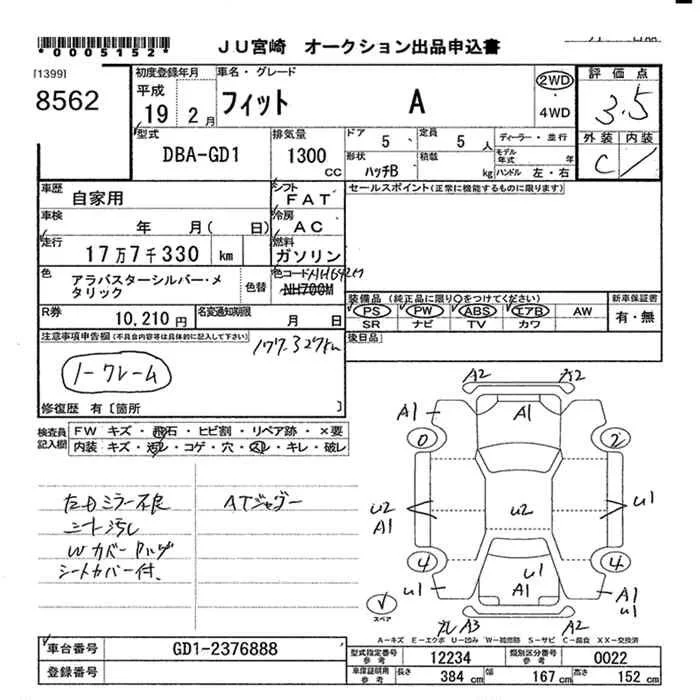 *0005152*
JU宮崎 オークション出品申込書
[1399]
8562
初度登録年月
平成
19 2月
車名・グレード
フィット A
2WD
・
4WD
評価点
3.5
外装 内装
C
型式
DBA-GD1
排気量
1300
CC
ドア 5
定員 5人
形状
ハッチB
積載 kg
ディーラー・並行
モデル年式 年
ハンドル 左・右
車歴
自家用
シフト
FAT
セールスポイント(正常に機能するものに限ります)
車検
年 月( 日)
冷房
AC
走行
17万7千330 km
燃料
ガソリン
色
アラバスターシルバー・メ
タリック
色替
色コード
NH642M
NH700M
装備品 (純正品に限り○をつけてください)
PS PW ABS エアB AW
SR ナビ TV カワ
新車保証書
有・無
R券
10,210円
名変通知期限
月 日
後日品
注意事項申告欄(不具合内容等は具体的に記入して下さい)
177.327km
ノークレーム
修復歴 有〔箇所 〕
検査員
記入欄
FW キズ・飛石・ヒビ割・リペア跡・×要
内装 キズ・汚レ・コゲ・穴・スレ・キレ・破レ
ATジャダー
シート汚レ
シートカバー付
A2 A2
A1 A1
0 2
U2 A1
U2
U1
4 4
U1
U1
A1
A1 U1
A3 A2
スペア
A-キズ E-エクボ U-凹み W-補修跡 S-サビ C-腐食 XX-交換済
車台番号
GD1-2376888
登録番号
型式指定番号
参考
12234
類別区分番号
参考
0022
車庫証明用
参考
長さ 384 cm
幅 167 cm
高さ 152 cm